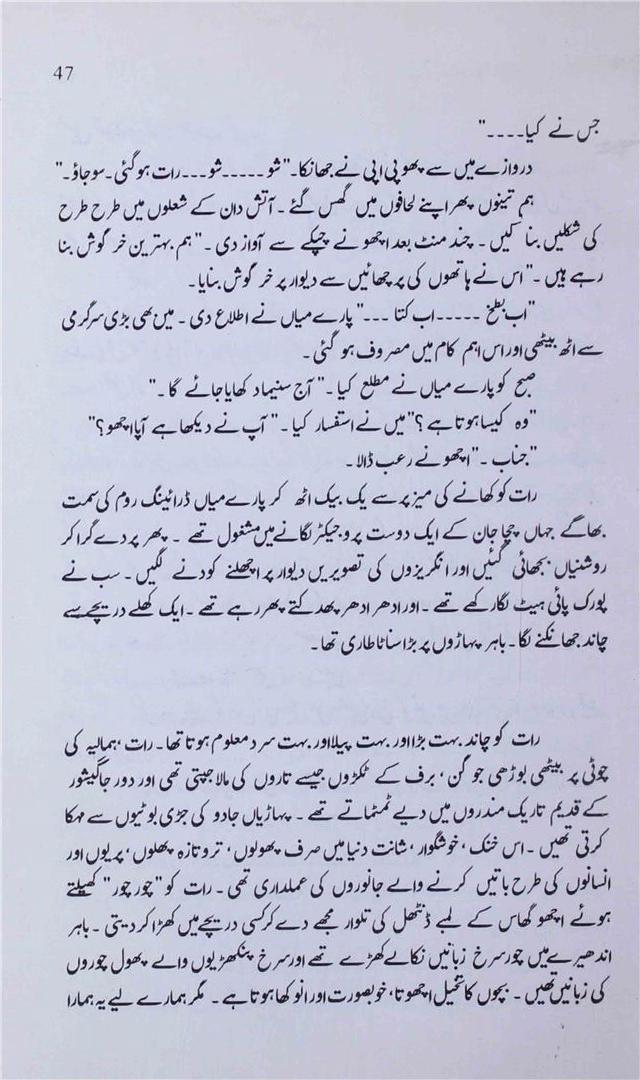 47
جس نے کیا۔۔۔۔"
دروازے میں سے پھوپی اپی نے جھانکا۔ "شو ۔۔۔۔۔شو۔۔۔رات ہو گئی۔ سو جاؤ۔"
ہم تینوں پھر اپنے لحافوں میں گھس گئے ۔ آتش دان کے شعلوں میں طرح طرح
کی شکلیں بنا کیں ۔ چند منٹ بعد اچھو نے چپکے سے آواز دی ۔ "ہم بہترین خرگوش بنا
رہے ہیں ۔" اس نے ہاتھوں کی پرچھائیں سے دیوار پر خرگوش بنایا۔
"اب بطخ ۔۔۔۔۔اب کتا ۔۔۔" پارے میاں نے اطلاع دی ۔ میں بھی بڑی سرگرمی
سے اٹھ بیٹھی اور اس اہم کام میں مصروف ہو گئی ۔
صبح کو پارے میاں نے مطلع کیا۔ "آج سنیما دکھایا جائے گا ۔"
"وہ کیسا ہوتا ہے؟" میں نے استفسار کیا ۔ "آپ نے دیکھا ہے آپا اچھو؟"
"جناب ۔" اچھو نے رعب ڈالا ۔
رات کو کھانے کی میز پر سے یک بیک اٹھ کر پارے میاں ڈرائینگ روم کی سمت
بھاگے جہاں چچا جان کے ایک دوست پروجیکٹر لگانے میں مشغول تھے ۔ پھر پردے گرا کر
روشنیاں بجھائی گئیں اور انگریزوں کی تصویریں دیوار پر اچھلنے کودنے لگیں ۔ سب نے
پورک پائی ہیٹ لگا رکھے تھے ۔ اور ادھر ادھر پھدکتے پھر رہے تھے ۔ ایک کھلے دریچے سے
چاند جھانکنے لگا۔ باہر پہاڑوں پر بڑا سناٹا طاری تھا ۔
رات کو چاند بہت بڑا اور بہت پیلا اور بہت سرد معلوم ہوتا تھا۔ رات، ہمالیہ کی
چوٹی پر بیٹھی بوڑھی جوگن، برف کے ٹکڑوں جیسے تاروں کی مالا جپتی تھی اور دور جاگیشور
کے قدیم تاریک مندروں میں دیے ٹمٹماتے تھے ۔ پہاڑیاں جادو کی جڑی بوٹیوں سے مہکا
کرتی تھیں ۔ اس خنک، خوشگوار، شانت دنیا میں صرف پھولوں، تروتازہ پھلوں، پریوں اور
انسانوں کی طرح باتیں کرنے والے جانوروں کی عملداری تھی ۔ رات کو "چور چور" کھیلتے
ہوئے اچھو گھاس کے لمبے ڈنٹھل کی تلوار مجھے دے کر کسی دریچے میں کھڑا کر دیتی ۔ باہر
اندھیرے میں چور سرخ زبانیں نکالے کھڑے تھے اور سرخ پنکھڑیوں والے پھول چوروں
کی زبانیں تھیں ۔ بچوں کا تخیل اچھوتا، خوبصورت اور انوکھا ہوتا ہے ۔ مگر ہمارے لیے یہ ہمارا